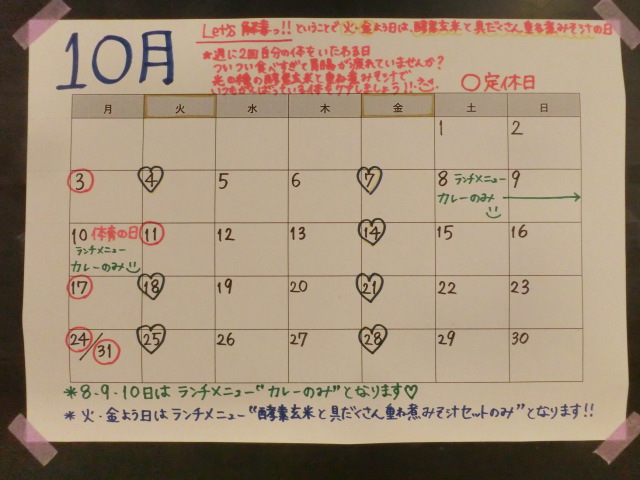 10月
Let's 解毒っ!! ということで 火・金よう日は、酵素玄米と具だくさん重ね煮みそ汁の日
*週に2回自分の体をいたわる日
ついつい食べすぎて胃腸が疲れていませんか?
光の種の酵素玄米と重ね煮みそ汁で
いつもがんばっている体をケアしましょう!!
○定休日
月 火 水 木 金 土 日
1 2
3 4 5 6 7 8 ランチメニュー 9
カレーのみ
10 体育の日 11 12 13 14 15 16
ランチメニュー
カレーのみ
17 18 19 20 21 22 23
24/31 25 26 27 28 29 30
*8・9・10日は ランチメニュー“カレーのみ”となります♡
* 火・金よう日はランチメニュー“酵素玄米と具だくさん重ね煮みそ汁セットのみ”となります!!